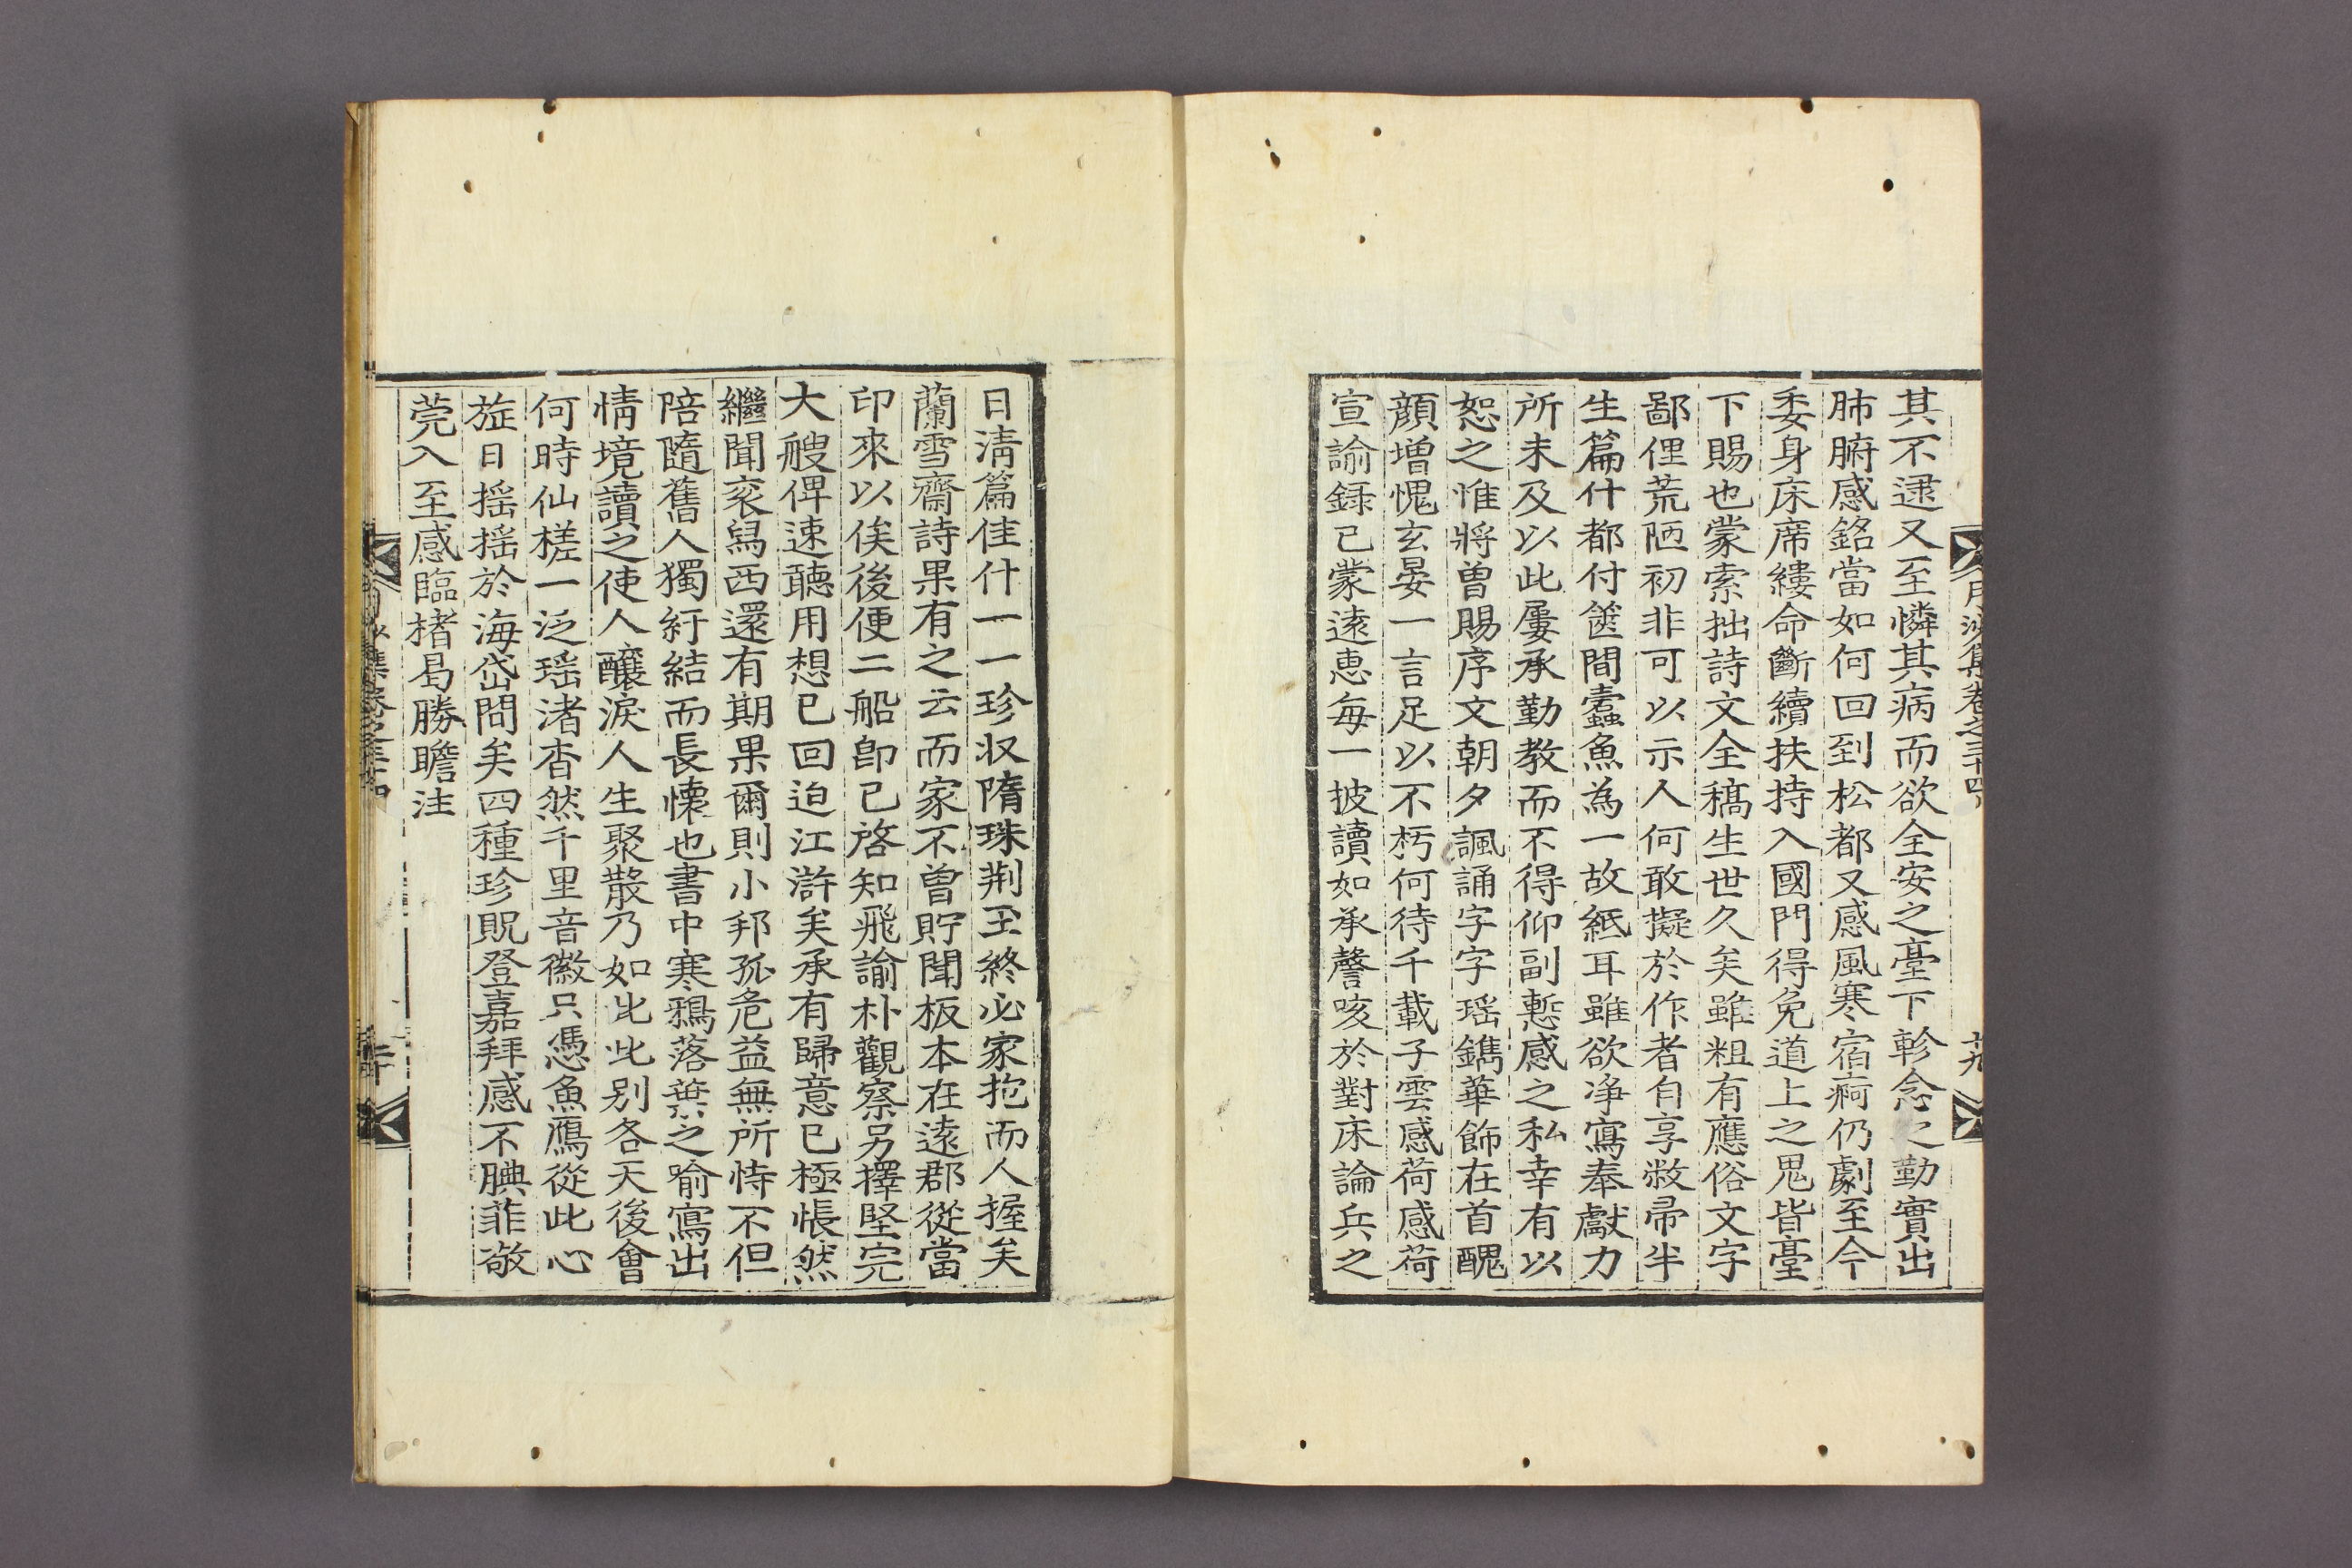 月沙集卷之三十四
十九
其不逮又至憐其病而欲全安之臺下軫念之勤實出
肺腑感銘當如何回到松都又感風寒宿痾仍劇至今
委身床席縷命斷續扶持入國門得免道上之鬼皆臺
下賜也蒙索拙詩文全稿生世久矣雖粗有應俗文字
鄙俚荒陋初非可以示人何敢擬於作者自享敝帚半
生篇什都付篋間蠹魚為一故紙耳雖欲凈寫奉獻力
所未及以此屢承勤教而不得仰副慙感之私幸有以
恕之惟將曾賜序文朝夕諷誦字字瑶鐫華飾在首醜
顔增愧玄晏一言足以不朽何待千載子雲感荷感荷
宣諭録已蒙遠惠每一披讀如承謦咳於對床論兵之
日淸篇佳什一一珍収隋珠荆玉終必家抱而人握矣
蘭雪齋詩果有之云而家不曾貯聞板本在遠郡從當
印來以俟後便二船卽已啓知飛諭朴觀察另擇堅完
大艘俾速聽用想已回迫江滸矣承有歸意已極悵然
繼聞衮舄西還有期果爾則小邦孤危益無所恃不但
陪隨舊人獨紆結而長懷也書中寒鴉落葉之喻寫出
情境讀之使人釀淚人生聚散乃如此此别各天後會
何時仙槎一泛瑶渚杳然千里音徽只憑魚鴈從此心
旌日揺揺於海岱間矣四種珍貺登嘉拜感不腆菲敬
莞入至感臨楮曷勝瞻注
二十